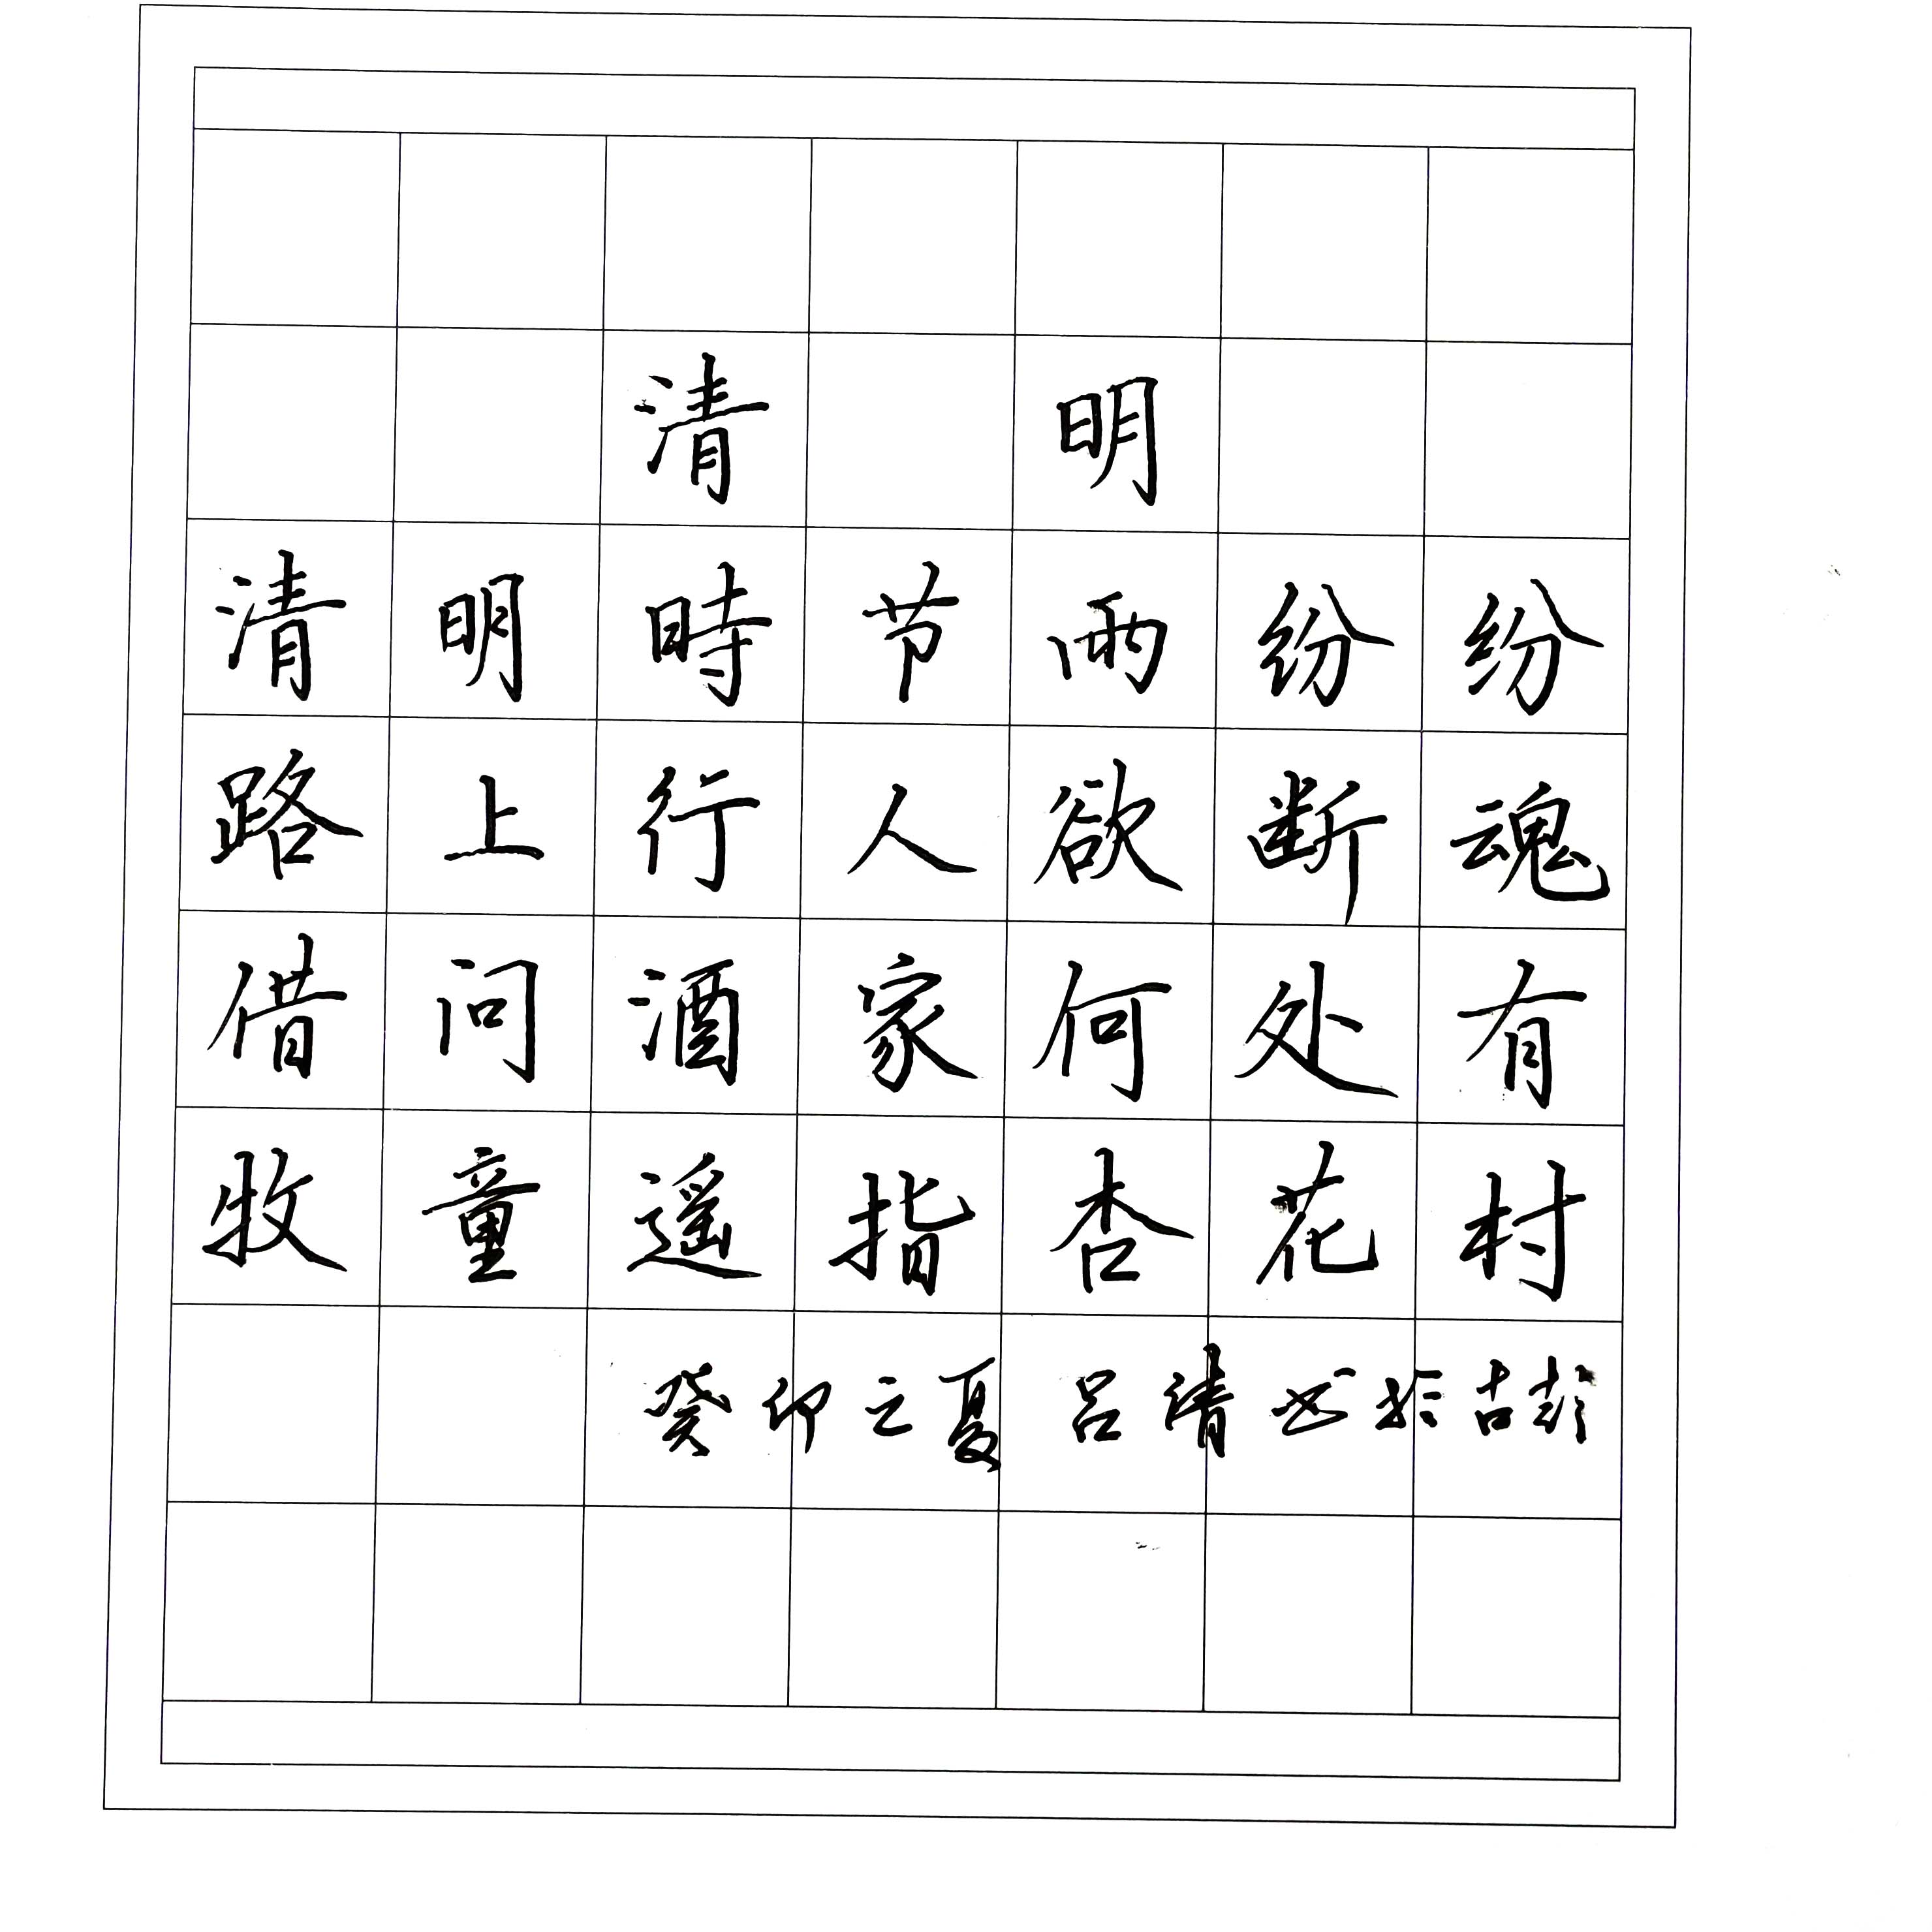 清明
清明時节雨纷纷
路上行人欲断魂
借问酒家何处有
牧童遥指杏花村
癸卯之夏吕书於吉林